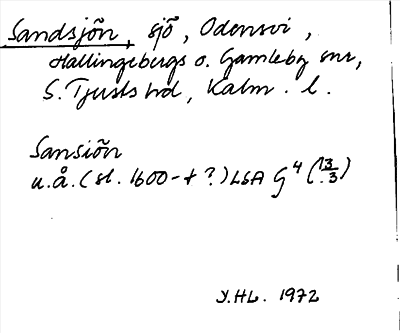 Sandsjön, sjö, Odensvi,
Hallingebergs o. Gamleby snr,
S. Tjusts hd, Kalm. l.
Sansiön
u.å. (sl. 1600-t ?) LSA G⁴ (13/3)
Y.HL. 1972